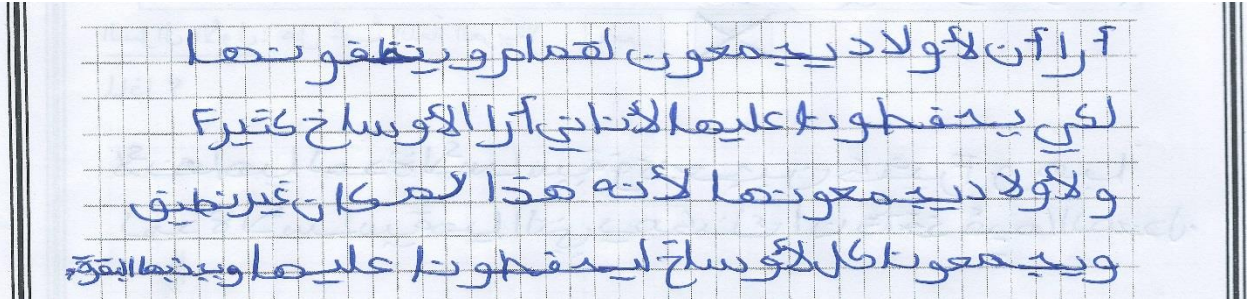 آرا آن لأولاد يجمعون لقمام وينظفونها
لكي يحفظون عليها لأناني آرا الأوساخ كتيرة
ولأولاد يجمعونها لأنه هذا لمكان غير نظيق
ويجمعون كل لأوساخ ليحفظون عليها